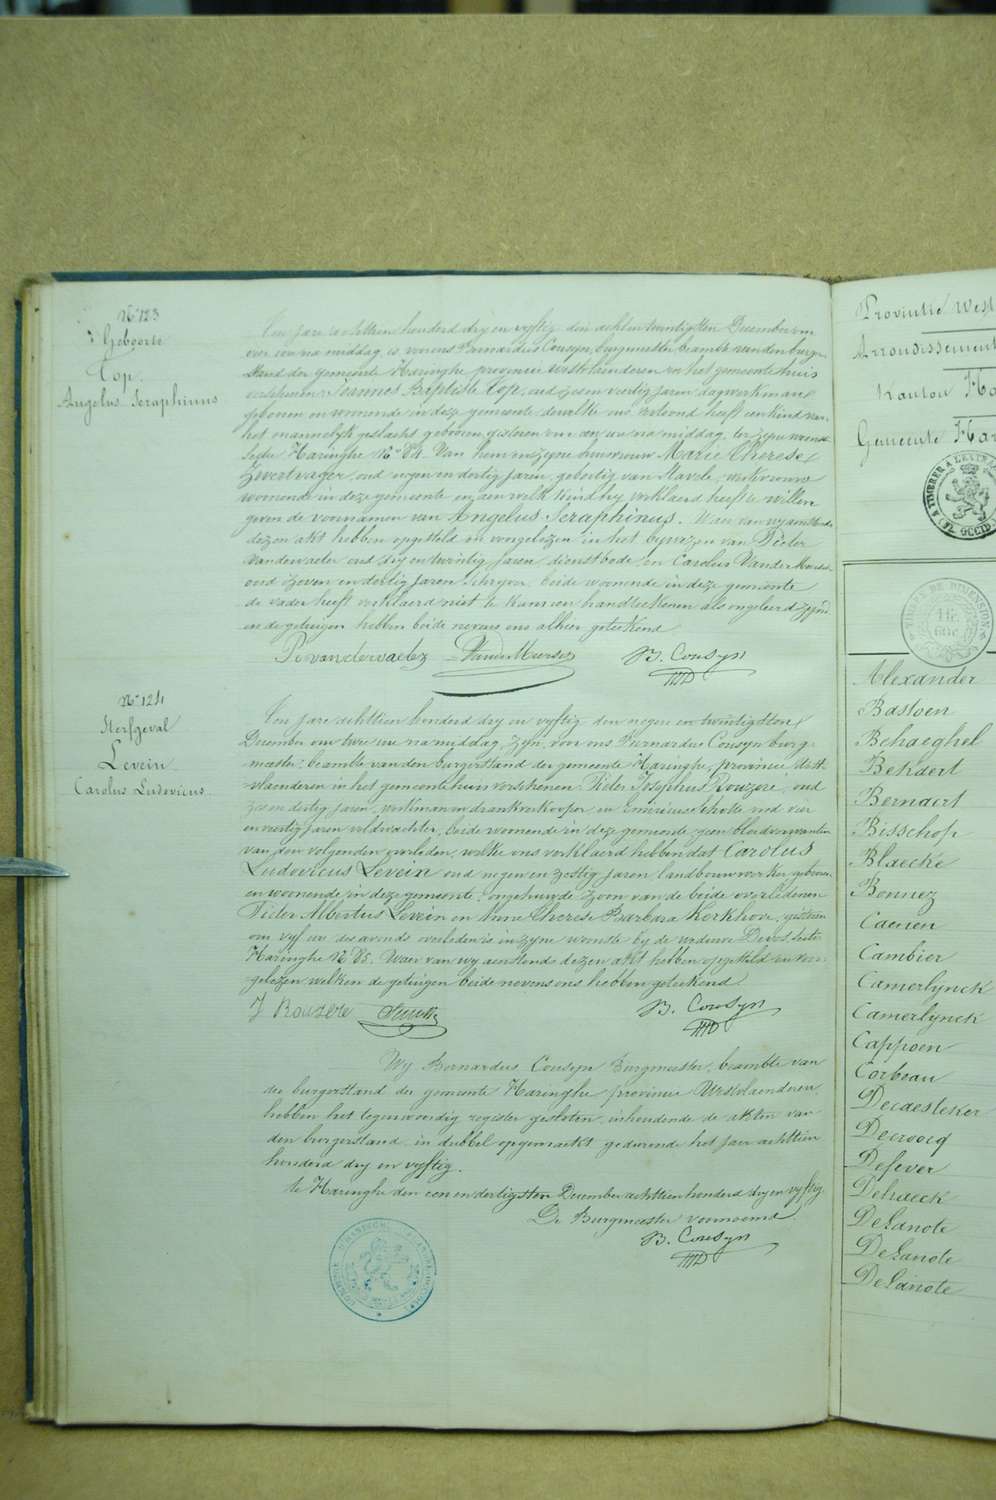 N° 123
Geboorte
Cop.
Angelus Seraphinus
Een jare achttien honderd dry en vyftig den achtentwintigsten December om
een uur na middag, is voor ons Bernardus Cousyn, burgmeester beambte van den burger-
stand der gemeente Haringhe provincie westvlaenderen in het gemeentehuis
verschenen Joannes Baptiste Cop, oud zes en veertig jaren dagwerkman
geboren en wonende in deze gemeente, dewelke ons vertoond heeft een kind van
het mannelyk geslacht geboren gisteren om een uur na middag, ter zyne woonste
Haringhe N° 84. Van hem en zyne huisvrouw Marie Therese
Zwertvager, oud negen en dertig jaren, geboortig van Stavele, werkvrouw
wonende in deze gemeente en aen welk kind hy verklaerd heeft te willen
geven de voornamen van Angelus Seraphinus. Waer van wy aenstonds
dezen akt hebben opgesteld en voorgelezen in het bywezen van Pieter
Vanderwaeter oud dry en twintig jaren, dienstbode en Carolus Vander Meersch
oud zeven en dertig jaren schryver, beide woonende in deze gemeente
de vader heeft verklaerd niet te kunnen handteekenen als ongeleerd zynde
en de getuigen hebben beide nevens ons alhier geteekend
B. Cousyn
N° 124
Sterfgeval
Levein
Carolus Ludovicus
Een jare achttien honderd dry en vyftig den negen en twintigsten
December om twee ure na middag, zyn, voor ons Bernardus Cousyn burg-
meester, beambte van den burgerstand der gemeente Haringhe, provincie West-
vlaenderen in het gemeentehuis verschenen Pieter Josephus Rouzere, oud
zes en dertig jaren, werkman en drankverkooper, en oud vier
en veertig jaren veldwachter, beide woonende in deze gemeente, geen bloedverwanten
van den volgenden overleden, welke ons verklaerd hebben dat Carolus
Ludovicus Levein oud negen en zestig jaren, landbouwwerker geboren
en woonende in deze gemeente, ongehuwde zoon van de beide overledenen
Pieter Albertus Levein en Anne Therese Barbara Kerkhove, gisteren
om vyf ure des avonds overleden is in zyne woonste by de weduwe Devos,
Haringhe N° 85. Waer van wy aenstonds dezen akt hebben opgesteld en voor-
gelezen welken de getuigen beide nevens ons hebben geteekend
J Rouzere
B. Cousyn
Wy Bernardus Cousyn Burgmeester, beambte van
den burgerstand der gemeente Haringhe provincie Westvlaenderen,
hebben het tegenwoordig register gesloten, inhoudende de akten van
den burgerstand, in dubbel opgemaekt, gedurende het jaer achttien
honderd dry en vyftig.
te Haringhe den een en dertigsten December achttien honderd dry en vyftig
De Burgmeester voornoemd.
B. Cousyn
Provintie West
Arrondissement
Kanton Ha
Gemeente Har
TIMBRE DE DIMENSION
Alexander
Bastoen
Behaeghel
Behaert
Bernaert
Bisschop
Blaecke
Bonnez
Caenen
Cambier
Camerlynck
Camerlynck
Cappoen
Corbeau
Decaesteker
Decroocq
Defever
Dehaeck
DeLanote
DeLanote
DeLanote